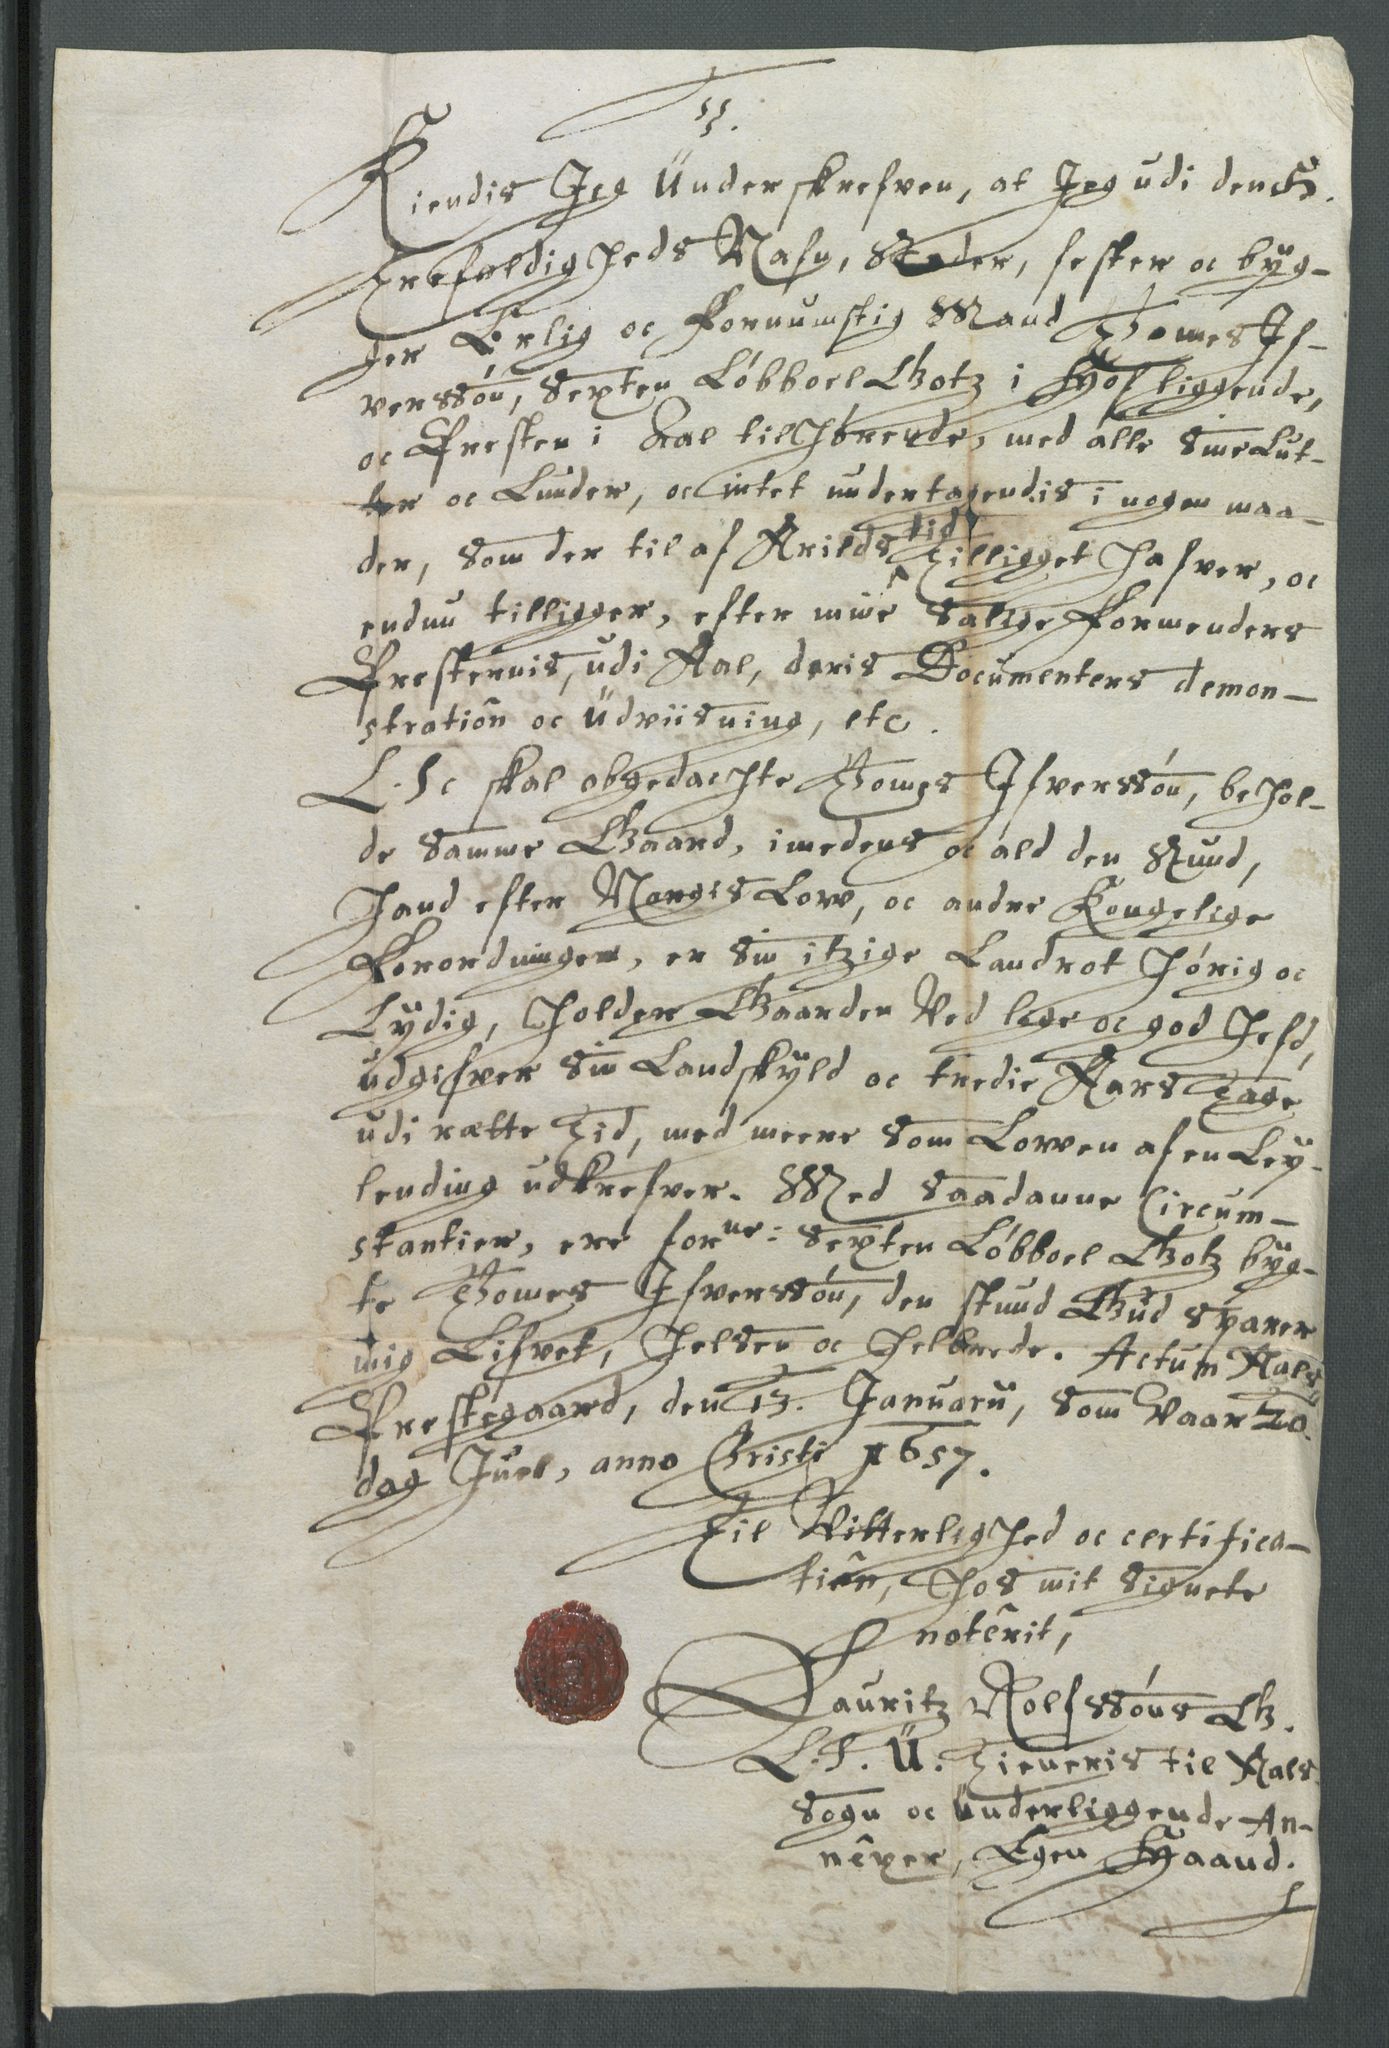 Kiendis Jeg Underskrefven, at Jeg udi den H.
Trefoldigheds Nafn, Steder, fester oc byg-
ger Erlig oc Fornumstig Mand Thomes If-
verssón, Sexten Lóbboel Gotz i Hof liggende,
oc Presten i Aal tilhórende, med alle sine Lut-
ter oc Lunder, oc intet undertagendis i nogen maa-
der, som der til af Arilds tid Tilligget hafver, oc
endnu tilligger, efter mine Salige Formenders
Presternis, udi Aal, deris Documenters demon-
stration oc Udviisning, etc.
skal obgedachte Thomes Ifverssón, behol-
de samme Gaard, imedens oc ald den Stund,
hand efter Norgis Low, oc andre Kongelige
Forordninger, er sin itzige Landrot hórig oc
Lydig, holder Gaarden Ved lige oc god hefd,
udgifver sin Landskyld oc tredie Aars Tage
udi rætte Tid, med meere som Lowen af en Ley-
lending udkrefver. Med saadanne Circum-
stantier, ere forne: Sexten Lóbboel Gotz byg-
te Thomes Ifverssón, den stund Gud sparer
mig Lifvet, helsen oc helbrede. Actum Aals
Prestegaard, den 13. Januarii, som Vaar 20.
dag Juel, anno Christi 1657.
Til Vitterlighed oc certifica-
tion, hos mit Signete
notêrit,
Lauritz Rolfssóns
L. S. U. Tieneris til Aals
Sogn oc Underliggende An-
nêxer, Egen Haand.